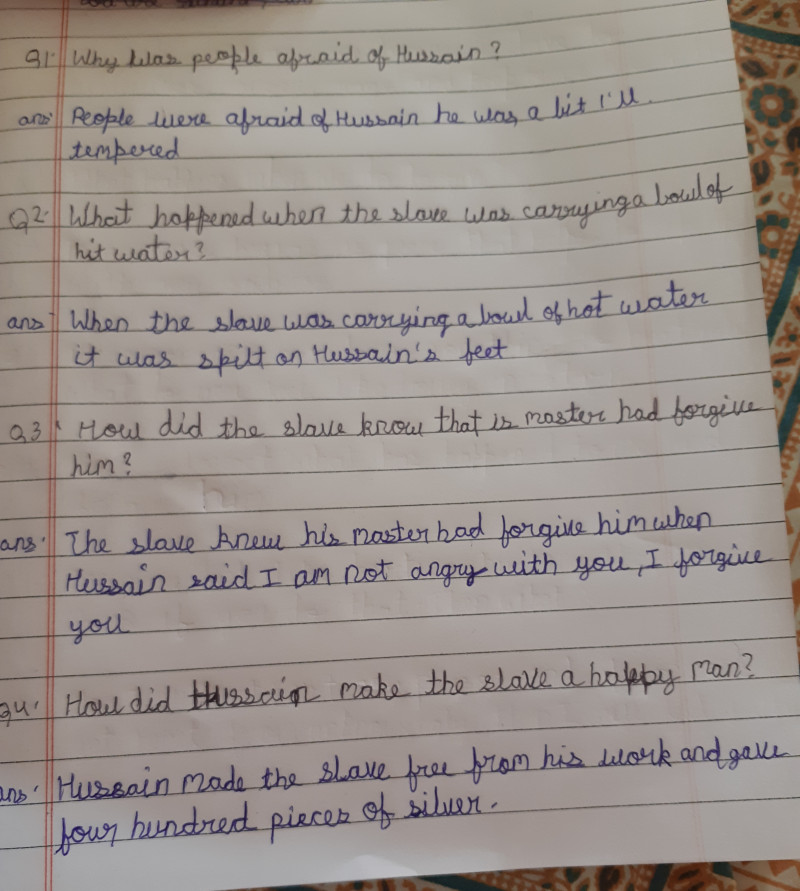 Q1. Why was people afraid of Hussain?
ans: People were afraid of Hussain he was a bit I'll
tempered
Q2. What happened when the slave was carrying a bowl of
hit water?
ans When the slave was carrying a bowl of hot water
it was spilt on Hussain's feet
Q3 How did the slave know that is master had forgive
him?
ans. The slave knew his master had forgive him when
Hussain said I am not angry with you, I forgive
you
Q4. How did Hussain make the slave a happy man?
ans. Hussain made the slave free from his work and gave
four hundred pieces of silver.